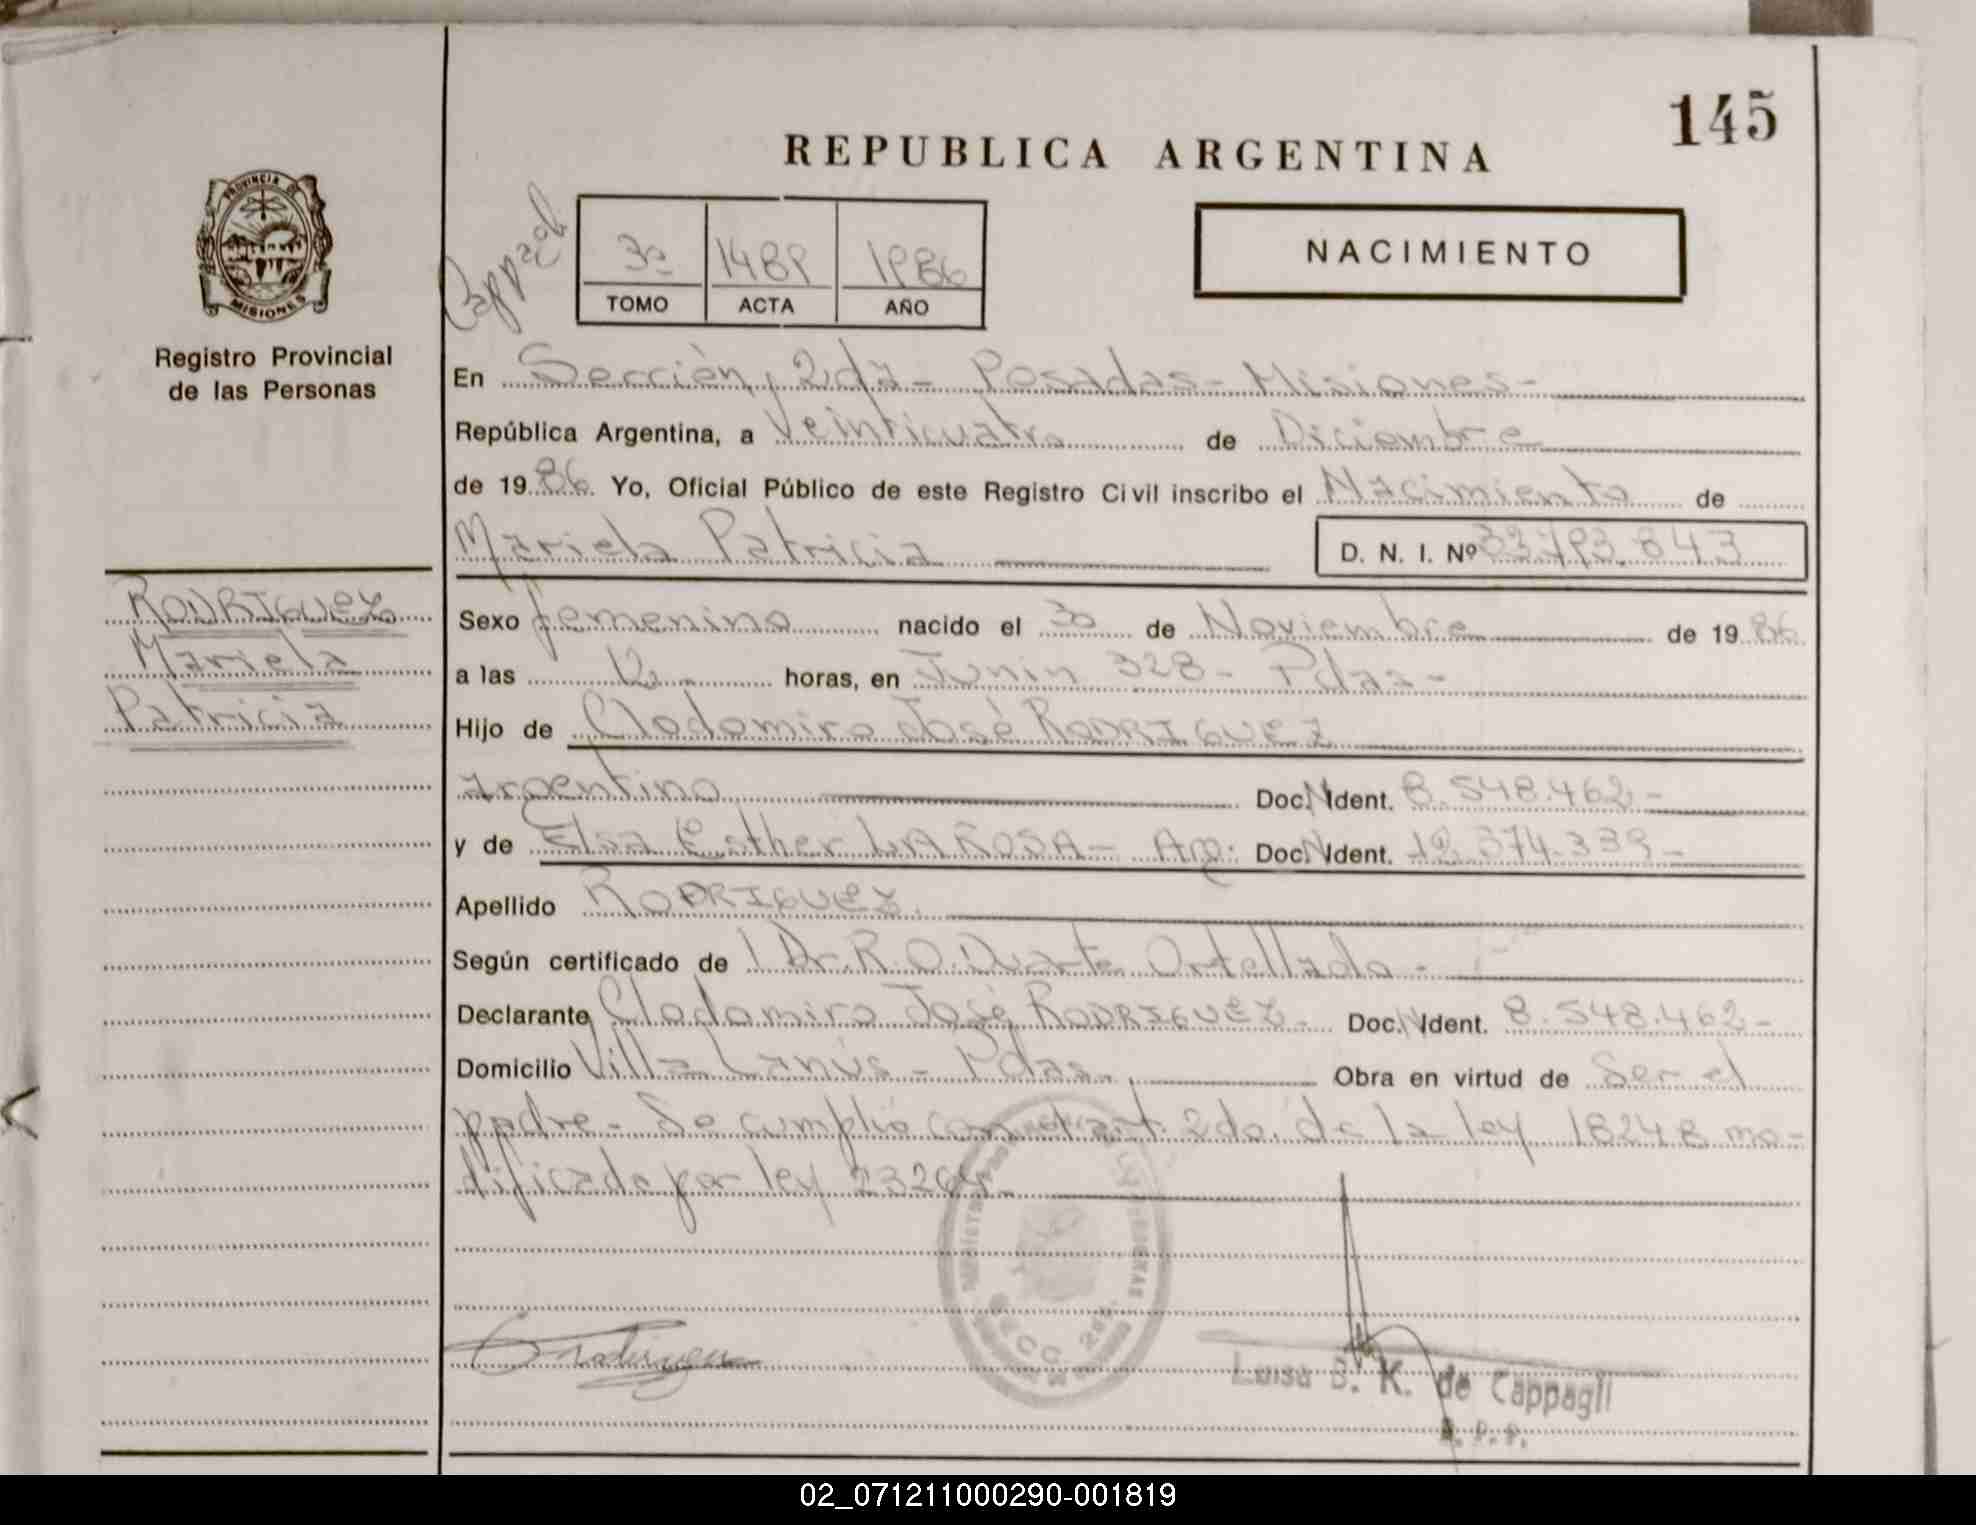 145
REPUBLICA ARGENTINA
PROVINCIA DE
MISIONES
Registro Provincial
de las Personas
3º 1489 1986
TOMO ACTA AÑO
NACIMIENTO
En Sección 2da - Posadas - Misiones -
República Argentina, a Veinticuatro de Diciembre
de 1986. Yo, Oficial Público de este Registro Civil inscribo el Nacimiento de
Mariela Patricia D. N. I. Nº
RODRIGUEZ
Mariela
Patricia
Sexo femenino nacido el 30 de Noviembre de 1986
a las 12 horas, en Junin 328 - Pdas -
Hijo de Clodomiro José RODRIGUEZ
argentino Doc. N. Ident. 8.548.462 -
y de Elsa Esther LAROSA - Arg. Doc. N. Ident.
Apellido RODRIGUEZ.
Según certificado de Dr. R. O. Duarte Ortellado -
Declarante Clodomiro José RODRIGUEZ. Doc. N. Ident. 8.548.462 -
Domicilio Villa Lanús - Pdas. Obra en virtud de Ser el
padre - Se cumplió con el art. 2do. de la ley 18248 mo-
dificada por ley 23264 -
SECC. 2da.
Luisa B. K. de Cappagli
02_071211000290-001819